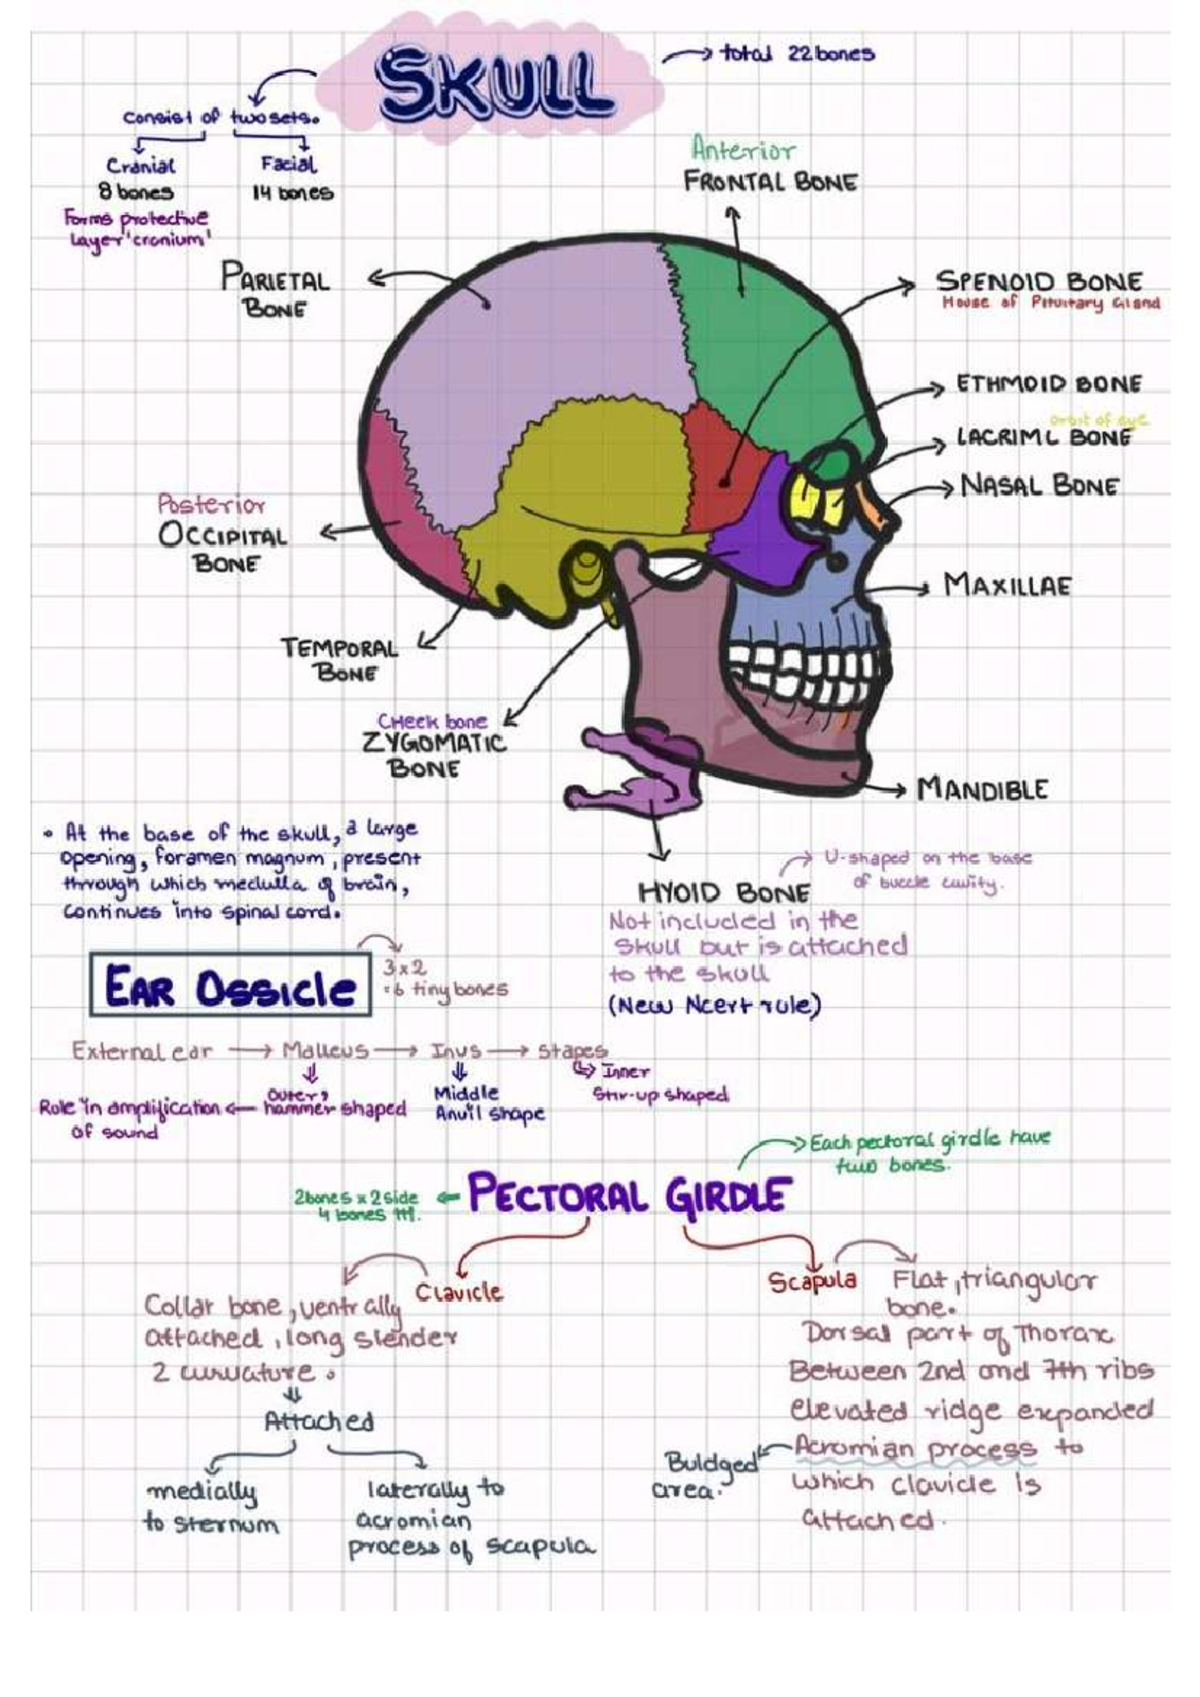 SKULL
→ total 22 bones
consist of two sets.
Cranial
8 bones
Forms protective
Layer 'cronium'
Facial
14 bones
Anterior
FRONTAL BONE
PARIETAL
BONE
SPENOID BONE
House of Pituitary Gland
ETHMOID BONE
orbit of eye
LACRIML BONE
NASAL BONE
Posterior
OCCIPITAL
BONE
MAXILLAE
TEMPORAL
BONE
CHeek bone
ZYGOMATIC
BONE
MANDIBLE
• At the base of the skull, a large
opening, foramen magnum, present
through which medulla of brain,
continues into spinal cord.
HYOID BONE
U-shaped on the base
of buccle cavity.
Not included in the
skull but is attached
to the skull
(New Ncert rule)
EAR OSSICLE
3x2
=6 tiny bones
External ear → Malleus → Invs → stapes
Outer,
hammer shaped
Role in amplification
of sound
Middle
Anvil shape
Inner
Stir-up shaped
Each pectoral girdle have
two bones.
PECTORAL GIRDLE
2bones x 2 side
4 bones
Clavicle
Collar bone, ventrally
attached, long slender
2 curvature.
Attached
medially
to sternum
laterally to
acromian
process of scapula
Scapula
Flat, triangular
bone.
Dorsal part of Thorax
Between 2nd and 7th ribs
elevated ridge expanded
Acromian process to
which clavicle is
attached.
Buldged
area.